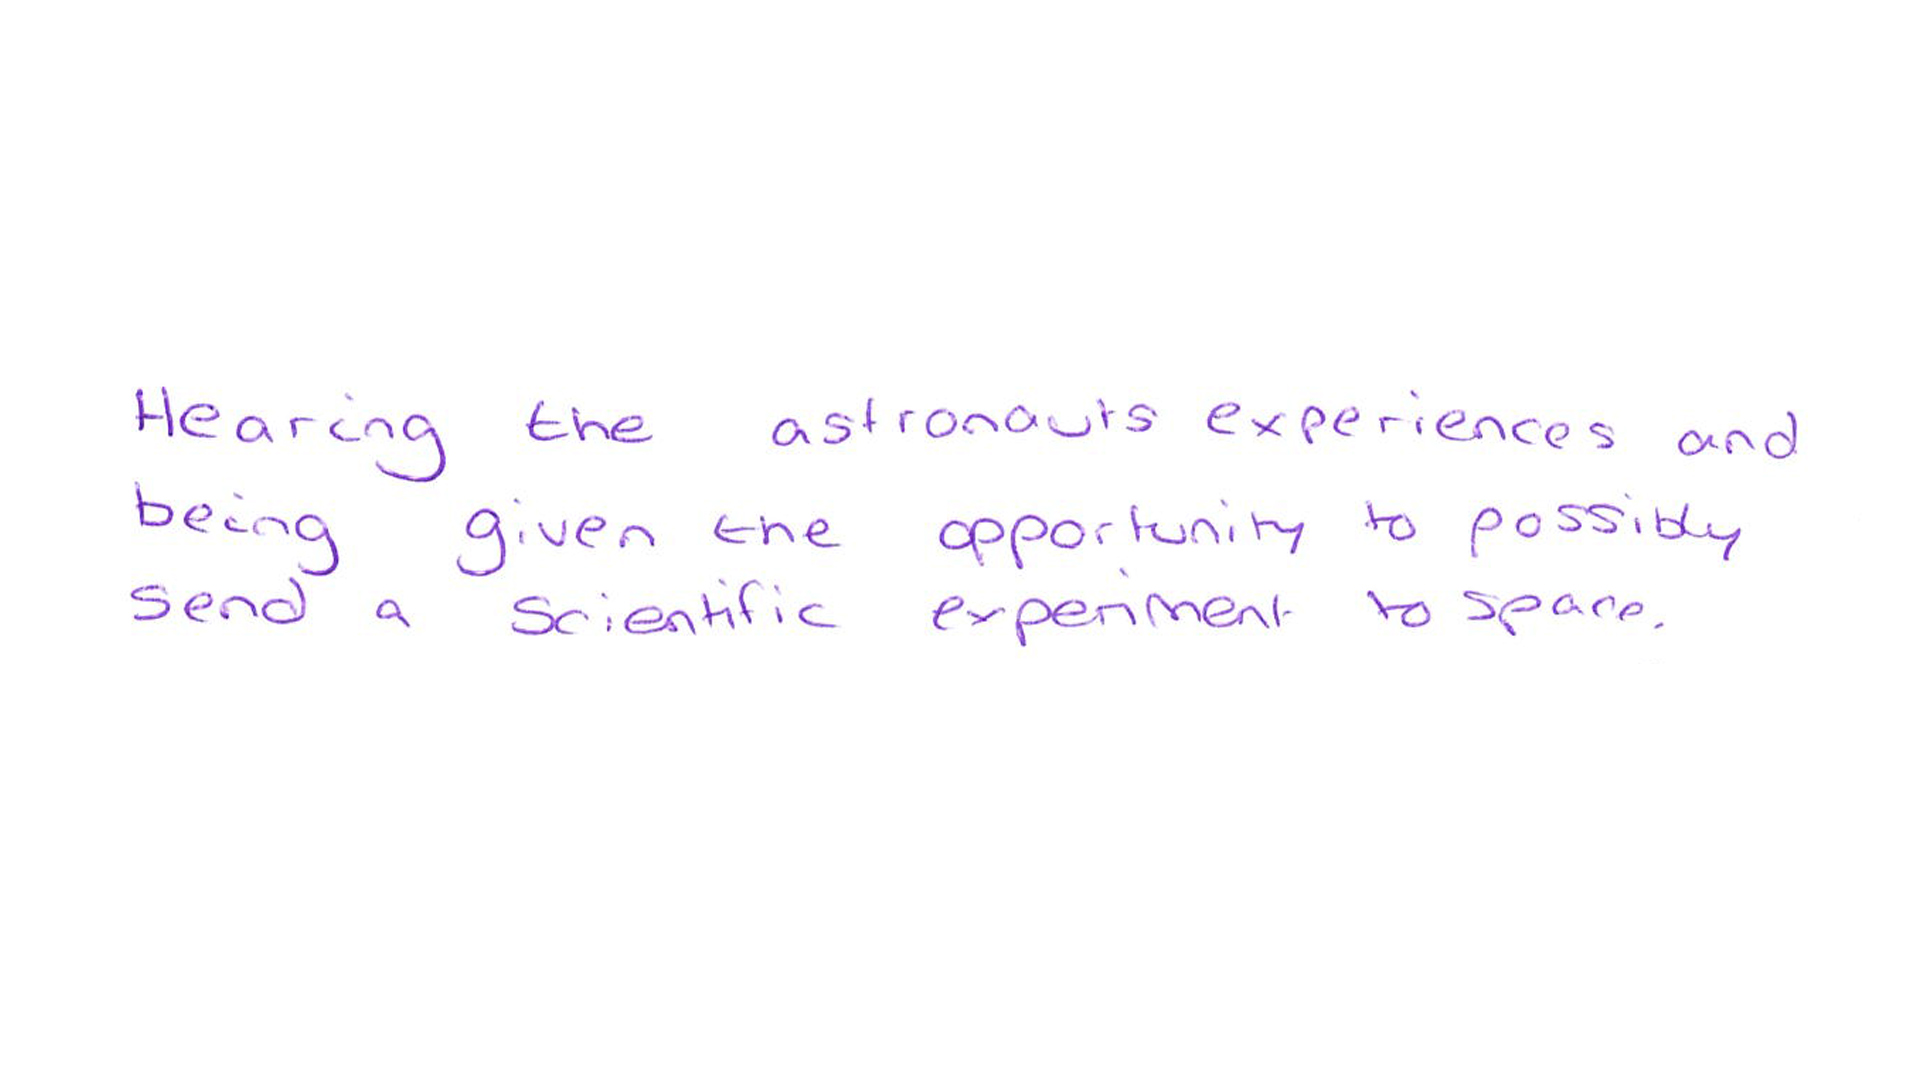 Hearing the astronauts experiences and
being given the opportunity to possibly
send a scientific experiment to space.